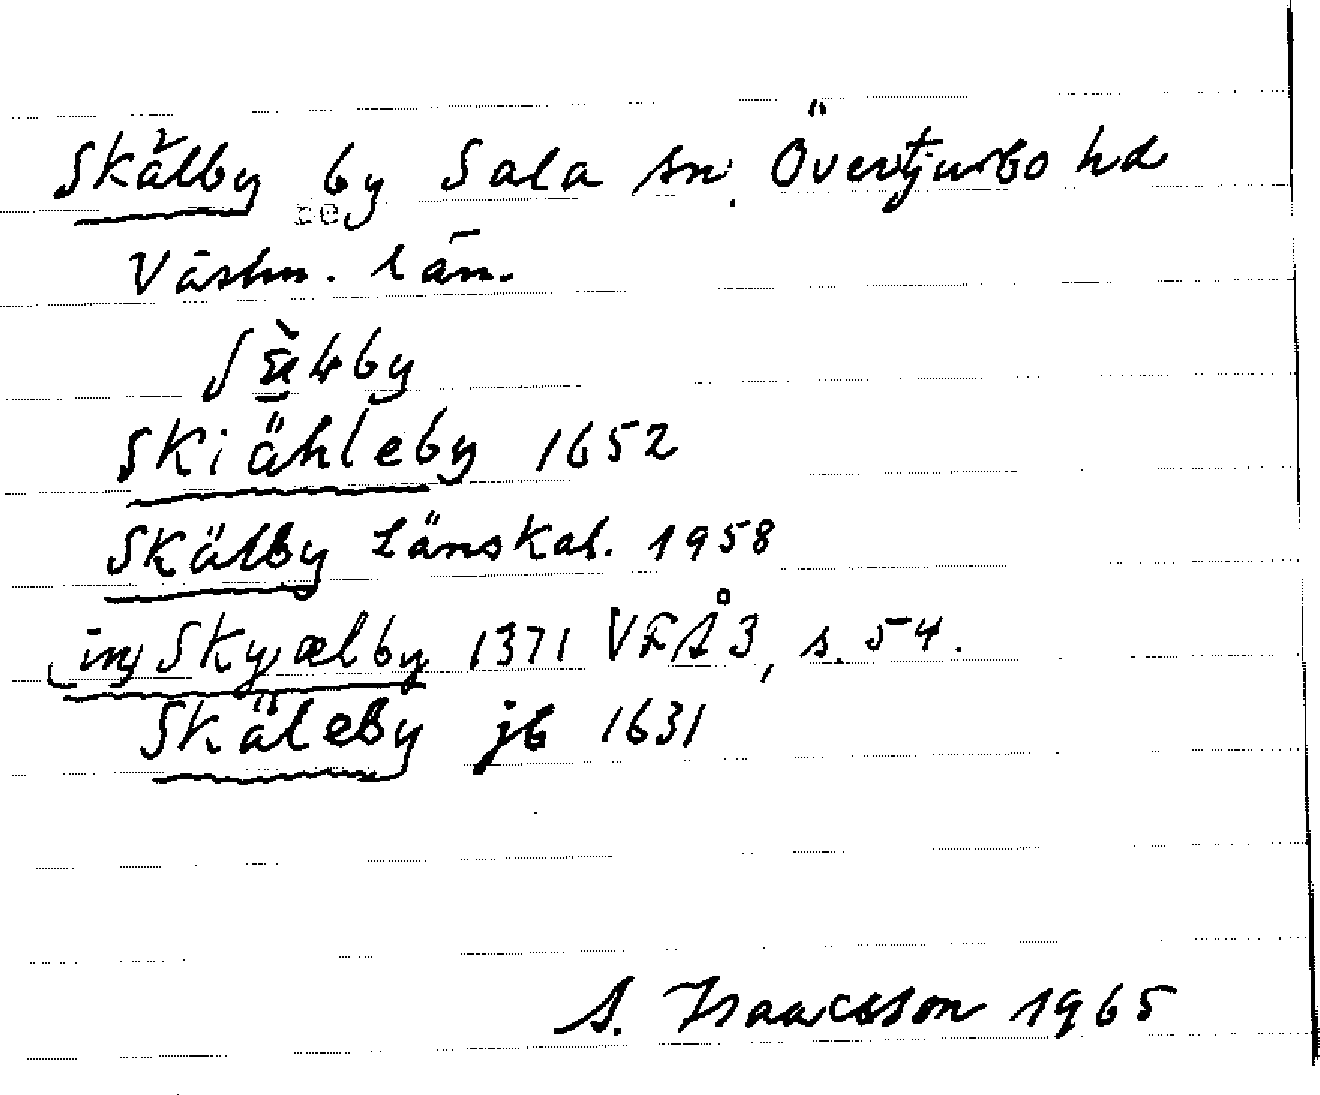 Skälby by Sala sn. Övertjurbo hd
Västm. län.
Skiähleby 1652
Skälby Länskal. 1958
(in) Skyælby 1371 VFÅ 3, s. 54.
Skäleby jb 1631
A. Isaacsson 1965